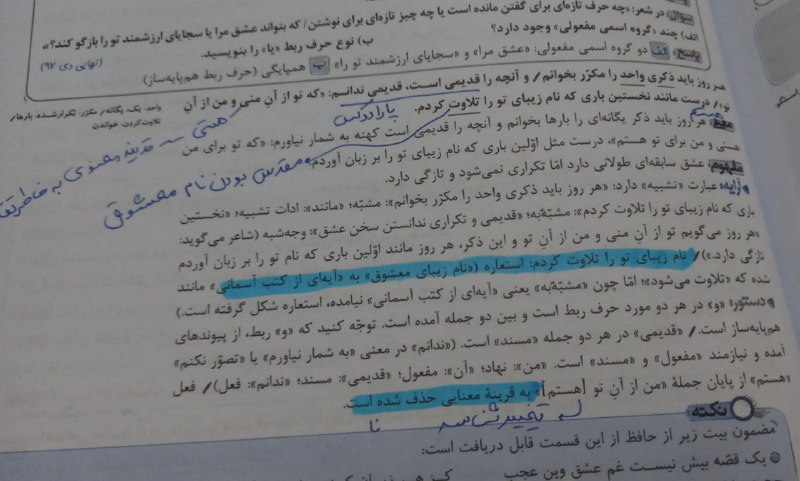 سؤال در شعر: «چه حرف تازه‌ای برای گفتن مانده است یا چه چیز تازه‌ای برای نوشتن/ که بتواند عشق مرا یا سجایای ارزشمند تو را بازگو کند؟»
الف) چند «گروه اسمی مفعولی» وجود دارد؟ ب) نوع حرف ربط «یا» را بنویسید. (نهایی دی ۹۷)
پاسخ: الف دو گروه اسمی مفعولی: «عشق مرا» و «سجایای ارزشمند تو را» ب همپایگی (حرف ربط هم‌پایه‌ساز)
هر روز باید ذکری واحد را مکرّر بخوانم/ و آنچه را قدیمی است، قدیمی ندانم: «که تو از آنِ منی و من از آنِ
تو»/ درست مانند نخستین باری که نام زیبای تو را تلاوت کردم.
واحد: یک، یگانه/ مکرّر: تکرارشده، بارها/
تلاوت کردن: خواندن
هستم
پارادوکس
معنا هر روز باید ذکر یگانه‌ای را بارها بخوانم و آنچه را قدیمی است کهنه به شمار نیاورم: «که تو برای من
هستی و من برای تو هستم»، درست مثل اوّلین باری که نام زیبای تو را بر زبان آوردم.
هستی قرینه معنوی به خاطر
مقدس بودن نام معشوق
مفهوم عشق سابقه‌ای طولانی دارد امّا تکراری نمی‌شود و تازگی دارد.
آرایه: عبارت «تشبیه» دارد: «هر روز باید ذکری واحد را مکرّر بخوانم»: مشبّه؛ «مانند»: ادات تشبیه؛ «نخستین
باری که نام زیبای تو را تلاوت کردم»: مشبّهٌ‌به؛ «قدیمی و تکراری ندانستن سخن عشق»: وجه‌شبه (شاعر می‌گوید:
«هر روز می‌گویم تو از آنِ منی و من از آنِ تو و این ذکر، هر روز مانند اوّلین باری که نام تو را بر زبان آوردم
تازگی دارد.»)/ نام زیبای تو را تلاوت کردم: استعاره («نام زیبای معشوق» به «آیه‌ای از کتب آسمانی» مانند
شده که «تلاوت می‌شود»؛ امّا چون «مشبّهٌ‌به» یعنی «آیه‌ای از کتب آسمانی» نیامده، استعاره شکل گرفته است.)
دستور: «و» در هر دو مورد حرف ربط است و بین دو جمله آمده است. توجّه کنید که «و» ربط، از پیوندهای
هم‌پایه‌ساز است./ «قدیمی» در هر دو جمله «مسند» است. («ندانم» در معنی «به شمار نیاورم» یا «تصوّر نکنم»
آمده و نیازمند «مفعول» و «مسند» است. «من»: نهاد؛ «آن»: مفعول؛ «قدیمی»: مسند؛ «ندانم»: فعل)/ فعل
«هستم» از پایان جملهٔ «من از آنِ تو [هستم]» به قرینهٔ معنایی حذف شده است.
نکته
مضمون بیت زیر از حافظ از این قسمت قابل دریافت است:
یک قصّه بیش نیست غم عشق وین عجب